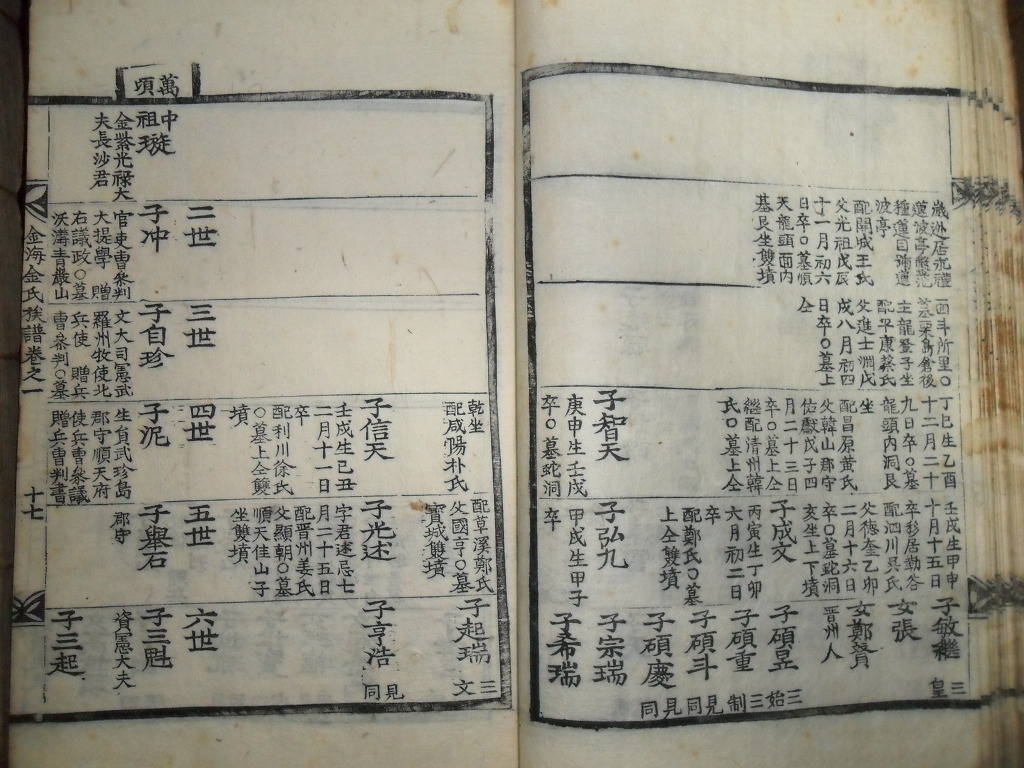 居永禮
種蓮因號蓮
波亭
配開城王氏
父光祖戊辰
十一月初六
日卒〇墓順
天龍頭面內
基艮坐雙墳
面斗所里〇
墓栗島倉後
主龍登子坐
配平康蔡氏
父進士淵戊
戌八月初四
日卒〇墓上
仝
丁巳生乙酉
十二月二十
九日卒〇墓
龍頭內洞艮
坐
配昌原黃氏
父韓山郡守
佑獻戊子四
月二十三日
卒〇墓上仝
繼配清州韓
氏〇墓上仝
子智天
庚申生壬戌
卒〇墓蛇洞
壬戌生甲申
十月十五日
卒移居勤谷
配泗川吳氏
父德奎乙卯
二月十六日
卒〇墓蛇洞
亥坐上下墳
子成文
丙寅生丁卯
六月初二日
卒
配鄭氏〇墓
上仝雙墳
子弘九
甲戌生甲子
卒
子敏繼
三皇
女張
女鄭賛
晉州人
子碩昱
三始
子碩重
三制
子碩斗
見同
子碩慶
見同
子宗瑞
子希瑞
萬頃
中祖璇
金紫光祿大
夫長沙君
二世
子冲
官吏曹參判
大提學 贈
右議政〇墓
沃溝青巖山
三世
子自珍
文大司憲武
羅州牧使北
兵使 贈兵
曹參判〇墓
乾坐
配咸陽朴氏
子信天
壬戌生己丑
二月十一日
卒
配利川徐氏
〇墓上仝雙
墳
四世
子泥
生負武珍島
郡守順天府
使兵曹參議
贈兵曹判書
配草溪鄭氏
父國亨〇墓
寶城雙墳
子光述
字君述忌七
月二十五日
配晉州姜氏
父顯朝〇墓
順天佳山子
坐雙墳
五世
子舉石
郡守
子起瑞
三文
子亨浩
見同
六世
子三魁
資憲大夫
子三起
金海金氏族譜卷之一
十七